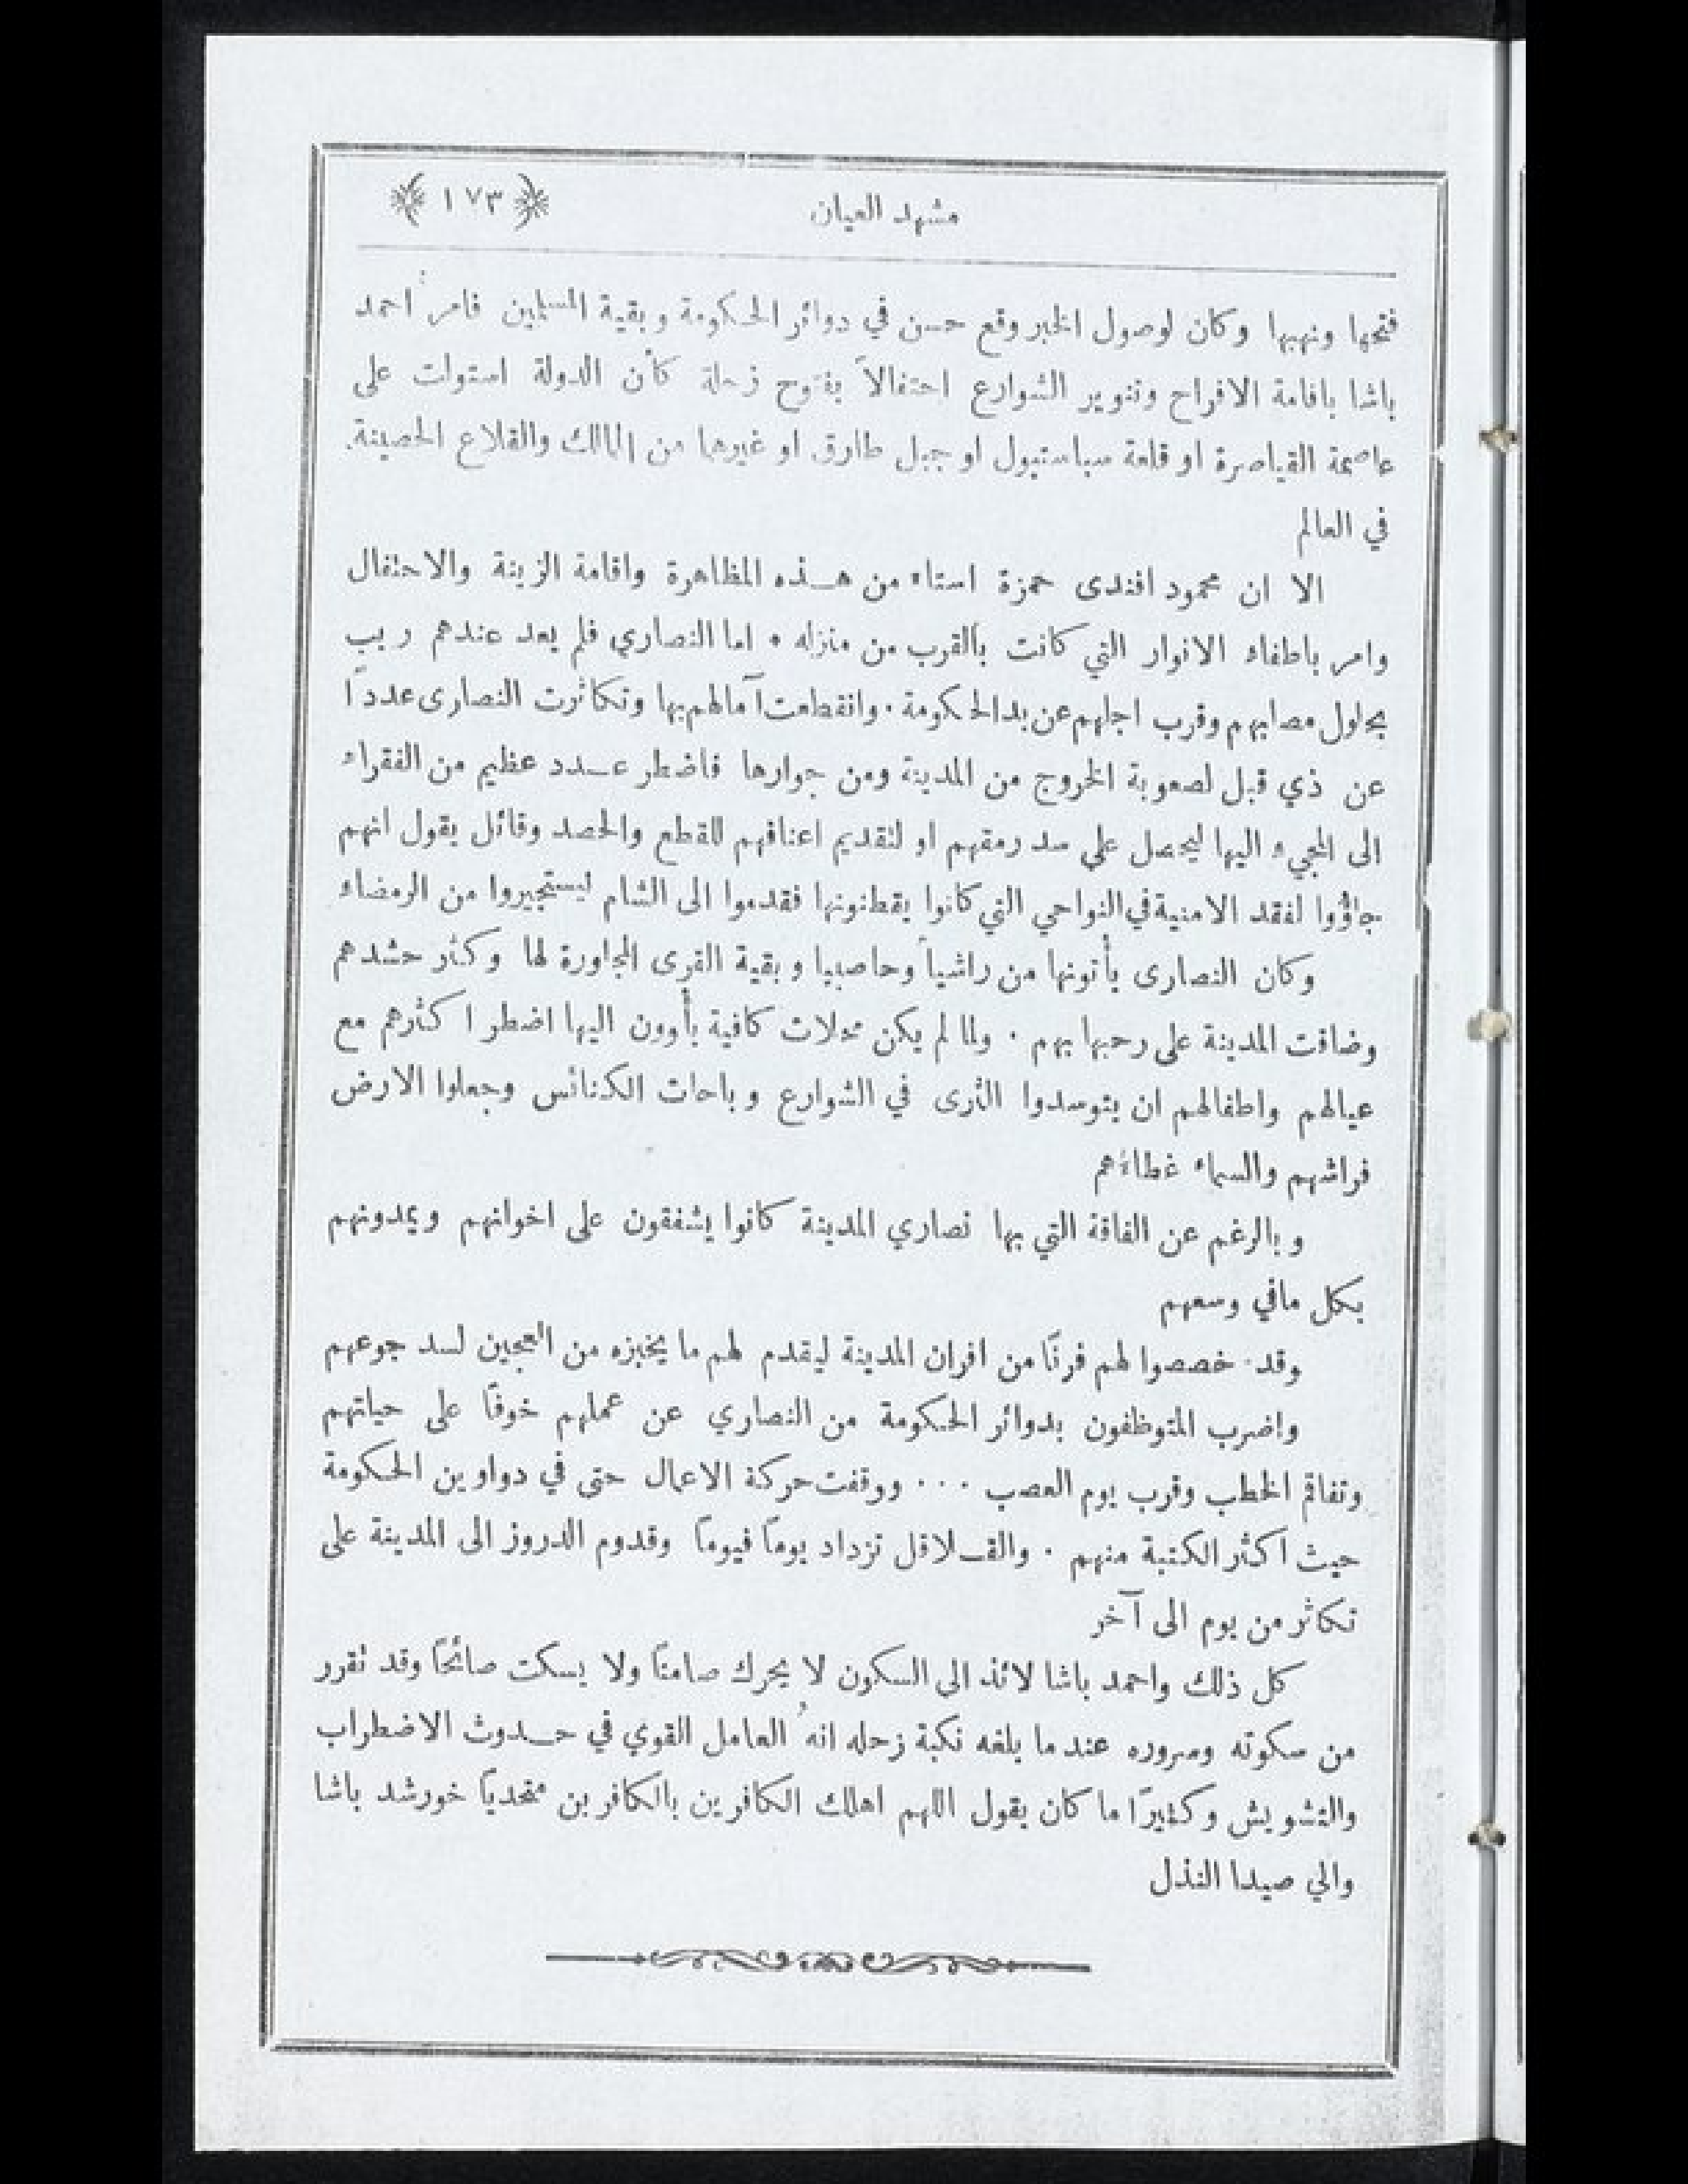 مشهد العيان
﴿ ١٧٣ ﴾
فتحها ونهبها وكان لوصول الخبر وقع حسن في دوائر الحكومة وبقية المسلمين فامر احمد
باشا باقامة الافراح وتنوير الشوارع احتفالاً بفتوح زحلة كأن الدولة استولت على
عاصمة القياصرة او قلعة سباستبول او جبل طارق او غيرها من الممالك والقلاع الحصينة
في العالم
الا ان محمود افندى حمزة استاء من هـذه المظاهرة واقامة الزينة والاحتفال
وامر باطفاء الانوار التي كانت بالقرب من منزله ٠ اما النصارى فلم يعد عندهم ريب
بحلول مصابهم وقرب اجلهم عن يد الحكومة ٠ وانقطعت آمالهم بها وتكاثرت النصارى عدداً
عن ذي قبل لصعوبة الخروج من المدينة ومن جوارها فاضطر عـدد عظيم من الفقراء
الى المجيء اليها ليحصل على سد رمقهم او لتقديم اعناقهم للقطع والحصد وقائل يقول انهم
جاؤوا لفقد الامنية في النواحي التي كانوا يقطنونها فقدموا الى الشام ليستجيروا من الرمضاء
وكان النصارى يأتونها من راشيا وحاصبيا وبقية القرى المجاورة لها وكثر حشدهم
وضاقت المدينة على رحبها بهم ٠ ولما لم يكن محلات كافية يأوون اليها اضطر اكثرهم مع
عيالهم واطفالهم ان يتوسدوا الثرى في الشوارع وباحات الكنائس وجعلوا الارض
فراشهم والسماء غطاءهم
وبالرغم عن الفاقة التي بها نصاري المدينة كانوا يشفقون على اخوانهم ويمدونهم
بكل مافي وسعهم
وقد خصصوا لهم فرنًا من افران المدينة ليقدم لهم ما يخبزه من العجين لسد جوعهم
واضرب المتوظفون بدوائر الحكومة من النصاري عن عملهم خوفًا على حياتهم
وتفاقم الخطب وقرب يوم العصب ٠٠٠ ووقفت حركة الاعمال حتى في دواوين الحكومة
حيث اكثر الكتبة منهم ٠ والقـلاقل تزداد يوماً فيوماً وقدوم الدروز الى المدينة على
تكاثر من يوم الى آخر
كل ذلك واحمد باشا لائذ الى السكون لا يحرك صامتًا ولا يسكت صائحًا وقد تقرر
من سكوته وسروره عند ما بلغه نكبة زحله انهُ العامل القوي في حـدوث الاضطراب
والتشويش وكثيرًا ما كان يقول اللهم اهلك الكافرين بالكافرين متحديًا خورشد باشا
والي صيدا النذل